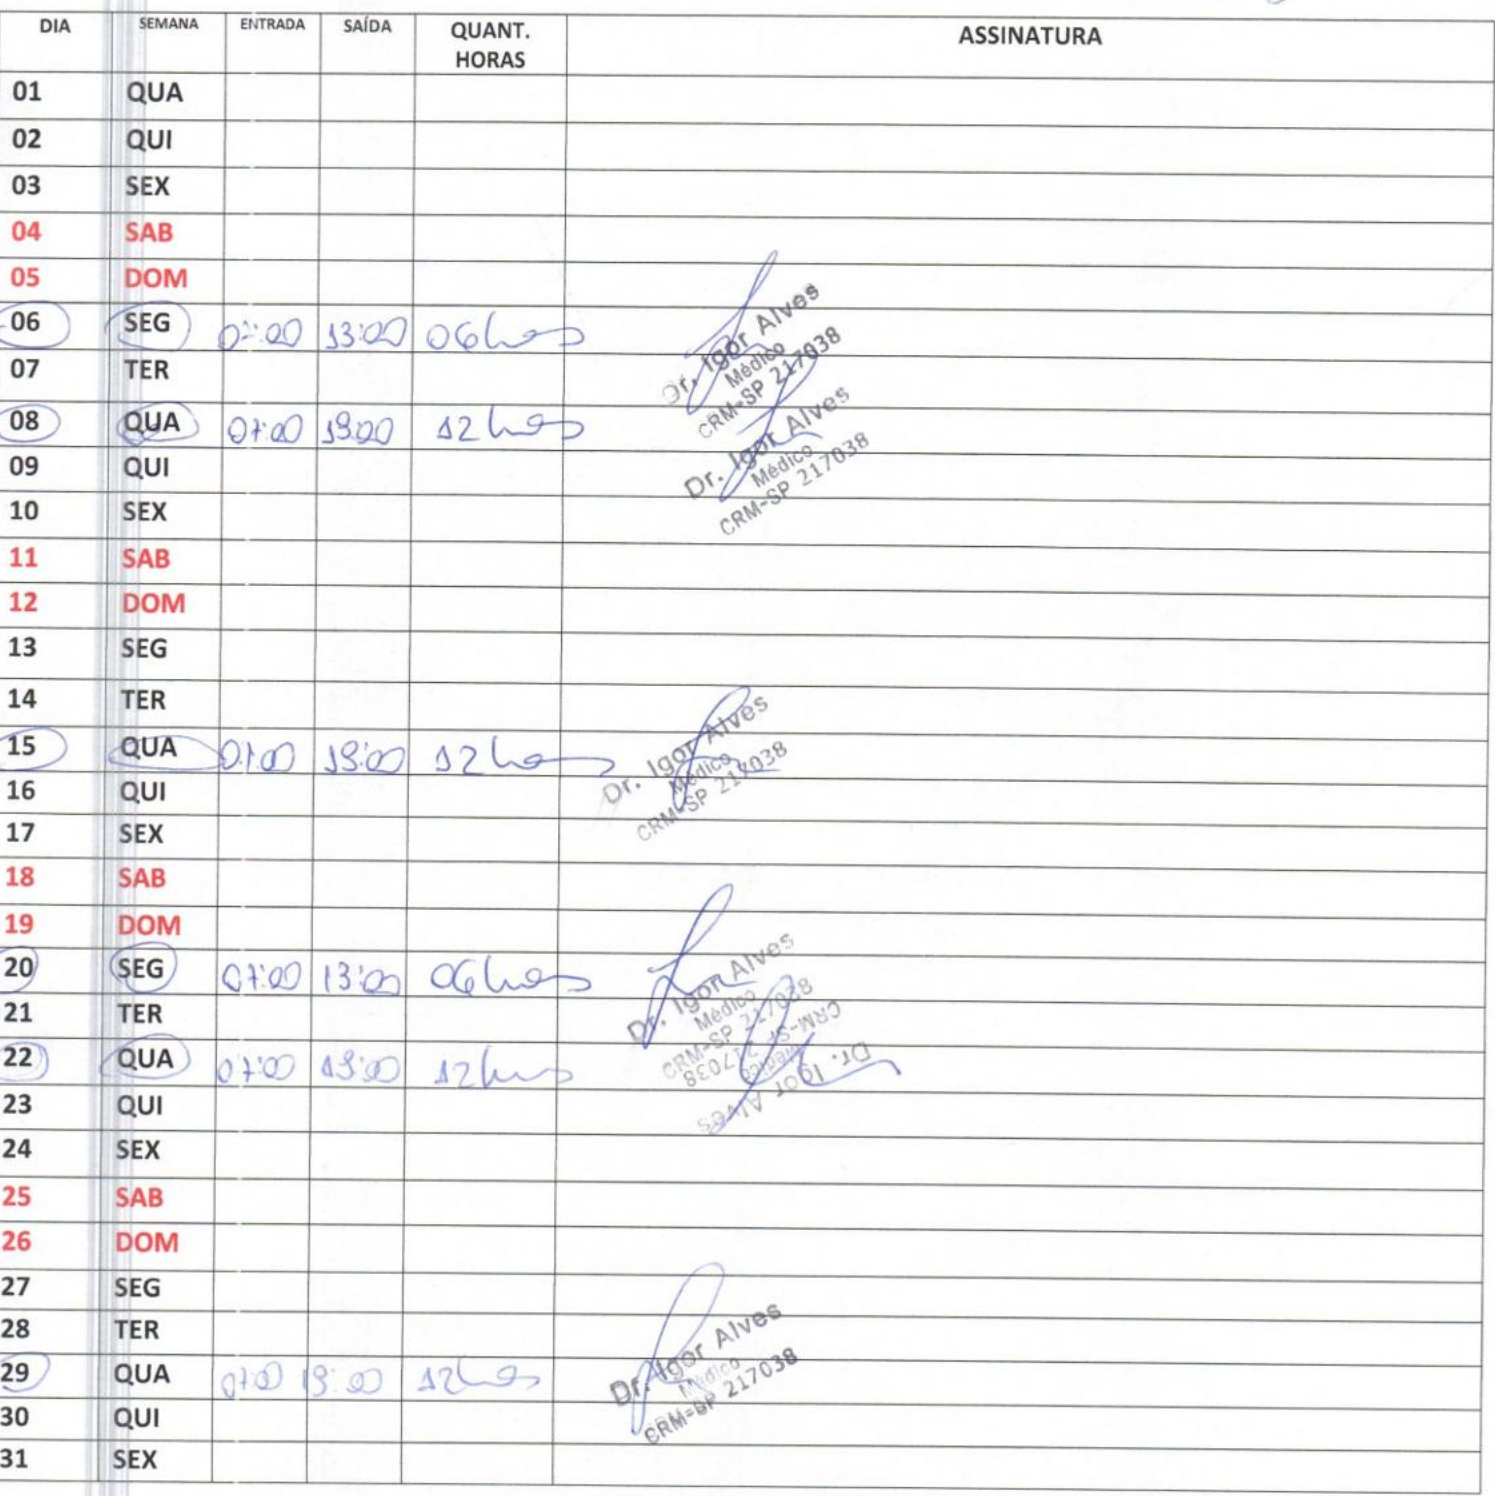 DIA SEMANA ENTRADA SAÍDA QUANT. HORAS ASSINATURA
01 QUA
02 QUI
03 SEX
04 SAB
05 DOM
06 SEG 07:00 13:00 06 horas
Dr. Igor Alves
Médico
CRM-SP 217038
07 TER
08 QUA 07:00 19:00 12 horas
Dr. Igor Alves
Médico
CRM-SP 217038
09 QUI
10 SEX
11 SAB
12 DOM
13 SEG
14 TER
15 QUA 07:00 19:00 12 horas
Dr. Igor Alves
Médico
CRM-SP 217038
16 QUI
17 SEX
18 SAB
19 DOM
20 SEG 07:00 13:00 06 horas
Dr. Igor Alves
Médico
CRM-SP 217038
21 TER
22 QUA 07:00 19:00 12 horas
Dr. Igor Alves
Médico
CRM-SP 217038
23 QUI
24 SEX
25 SAB
26 DOM
27 SEG
28 TER
29 QUA 07:00 19:00 12 horas
Dr. Igor Alves
Médico
CRM-SP 217038
30 QUI
31 SEX